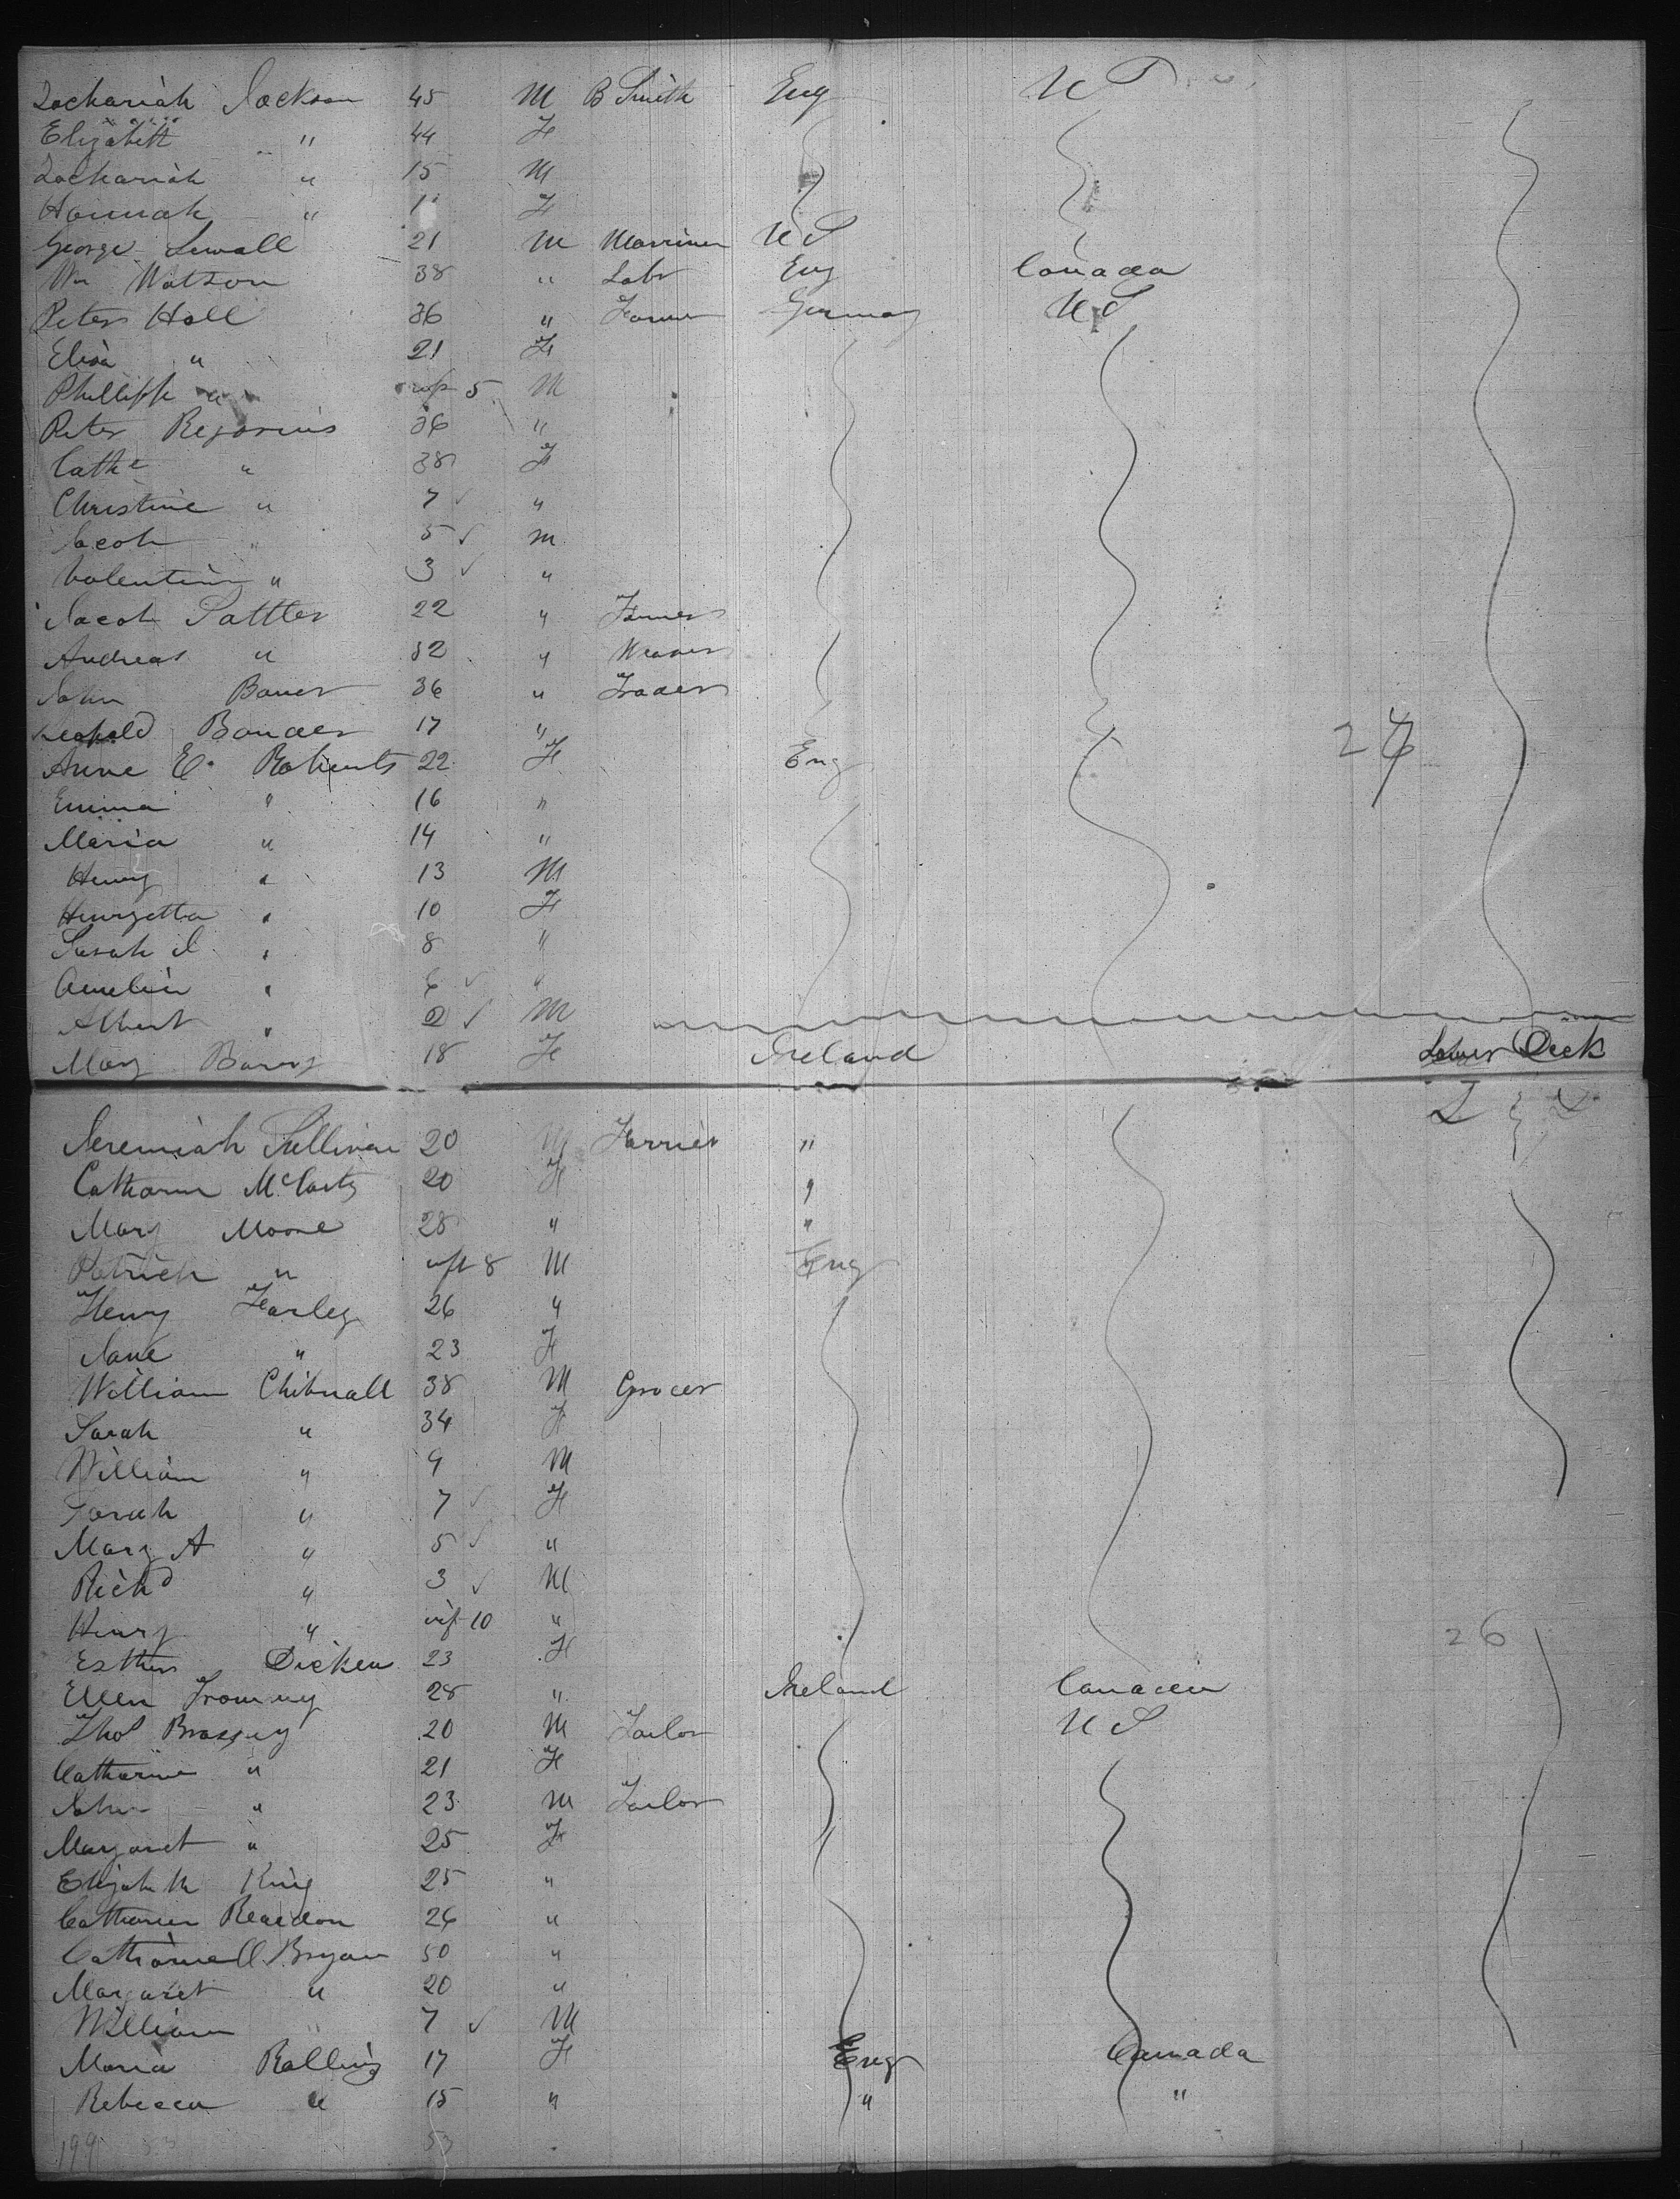 Zachariah Jackson 45 M B Smith Eng U S
Elizabeth " 44 F
Zachariah " 15 M
Hannah " F
George Sewall 21 M Marriner U S
Wm Watson 38 " Labr Eng Canada
Peter Hall 36 " Farmer Germany U S
Elisa " 21 F
Phillipp " inft 5 M
Peter 36 "
Cathe " 38 F
Christine " 7 "
Jacob " 5 M
Valentine " 3 "
Jacob Sattler 22 " Farmer
Andreas " 32 " Weaver
John Bauer 36 " Trader
Leopold Bander 17 "
Anne E. Roberts 22 F Eng
Emma " 16 "
Maria " 14 "
Henry " 13 M
Henryetta " 10 F
Sarah J " 8 "
Amelia " 6 "
Albert " 2 M
Mary Barry 18 F Ireland Lower Deck
Jeremiah Sullivan 20 M Farrier "
Catharine McCarty 20 F "
Mary Moore 28 " "
Patrick " inft 8 M Eng
Henry Farley 26 "
Jane " 23 F
William Chibnall 38 M Grocer
Sarah " 34 F
William " 9 M
Sarah " 7 F
Mary A " 5 "
Richd " 3 M
Henry " inf 10 " 26
Esther Dicken 23 F
Ellen 28 " Ireland Canada
Thos 20 M Tailor U S
Catharine " 21 F
John " 23 M Tailor
Margaret " 25 F
Elizabeth King 25 "
Catharine Reardon 26 "
Catharine O Bryan 50 "
Margaret " 20 "
William 7 M
Maria Ralling 17 F Eng Canada
Rebecca " 15 " " "
199 53